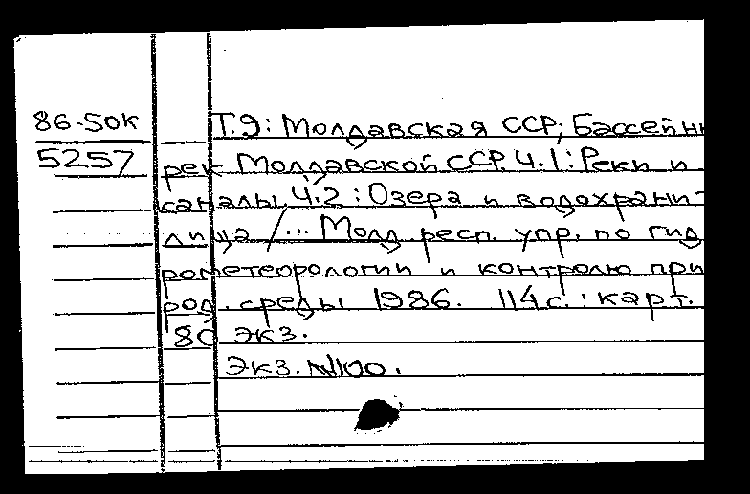 86-50к Т.9: Молдавская ССР; Бассейны
5257 рек Молдавской ССР. Ч.1: Реки и
каналы. Ч.2: Озера и водохрани-
лища /... Молд. респ. упр. по гид
рометеорологии и контролю при
род. среды 1986. 114 с.: карт.
80 экз.
Экз. №100.